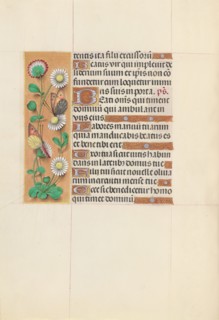 tentis ita filii excussorū
Beatus vir qui implevit de
siderium suum ex ipsis non cō
fundetur cum loquetur inimi
cis suis in porta. ps.
Beati omīs qui timent
dominū qui ambulant in
viis eius
Labores manuū tuarum
quia manducabis beatus es
et bene tibi erit
Uxor tua sicut vitis habun
dans in lateribꝫ domus tue
Filii tui sicut novelle oliva
rum in circuitu mense tue
Ecce sic benedicetur homo
qui timet dominū